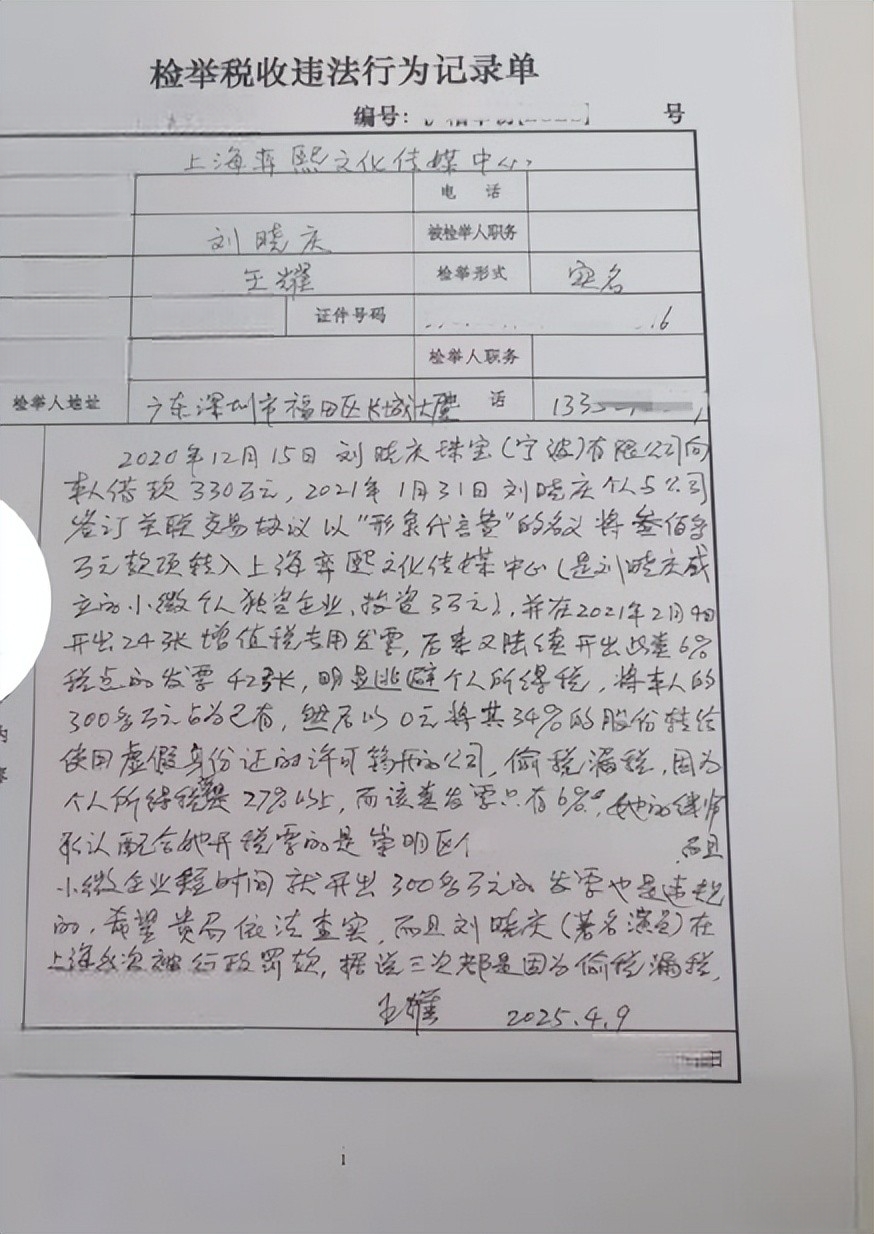 检举税收违法行为记录单
编号: 号
上海弈熙文化传媒中心
电 话
刘晓庆 被检举人职务
王耀 检举形式 实名
证件号码 6
检举人职务
检举人地址 广东深圳市福田区长城大厦 话 133
2020年12月15日刘晓庆珠宝(宁波)有限公司向
本人借款330万元,2021年1月31日刘晓庆个人与公司
签订关联交易协议以"形象代言费"的名义将叁佰多
万元款项转入上海弈熙文化传媒中心(是刘晓庆成
立的小微个人独资企业、投资3万元),并在2021年2月4日
开出24张增值税专用发票,后来又陆续开出此类6%
税点的发票42张,明显逃避个人所得税,将本人的
300多万元占为己有,然后以0元将其34%的股份转给
使用虚假身份证的许可 的公司,偷税漏税,因为
个人所得税是27%以上,而该类发票只有6%。她的律师
承认配合她开税票的是崇明区个 而且
小微企业短时间就开出300多万元的发票也是违规
的,希望贵局依法查实,而且刘晓庆(著名演员)在
上海多次被行政罚款,据说三次都是因为偷税漏税,
王耀 2025.4.9
日
内
容
1